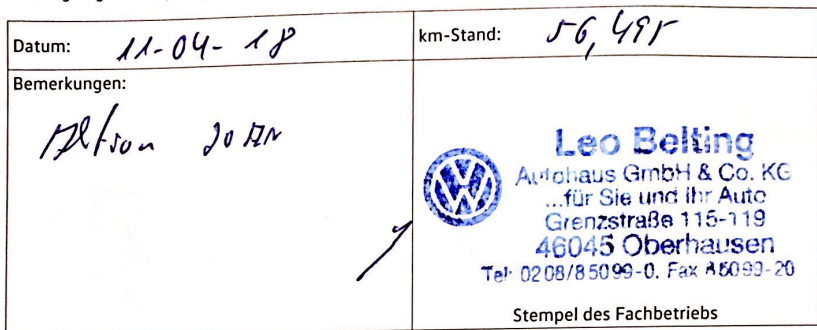 Datum: 11-04-18
km-Stand: 56,495
Bemerkungen:
Aktion 20 AN
Leo Belting
Autohaus GmbH & Co. KG
...für Sie und Ihr Auto
Grenzstraße 115-119
46045 Oberhausen
Tel: 0208/85099-0. Fax 85099-20
Stempel des Fachbetriebs